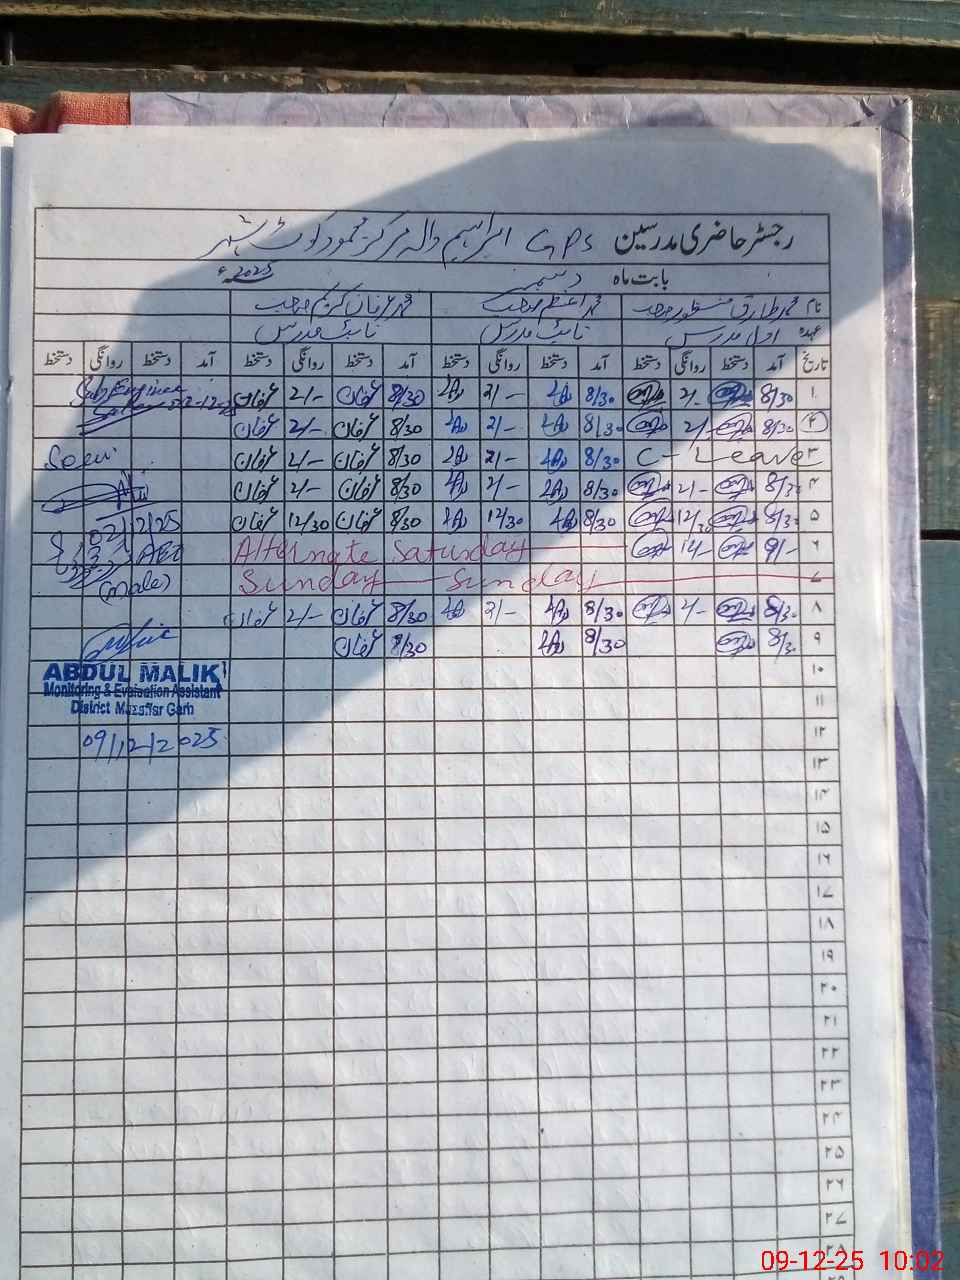 رجسٹر حاضری مدرسین GPS ابراہیم والہ مرکز محمود کوٹ شہر
بابت ماہ دسمبر 2025ء
نام محمد طارق منظور صاحب محمد اعظم صاحب محمد عرفان کریم صاحب
عہدہ اول مدرس نائب مدرس نائب مدرس
تاریخ آمد دستخط روانگی دستخط آمد دستخط روانگی دستخط آمد دستخط روانگی دستخط آمد دستخط روانگی دستخط
۱ 8/30 2/- 8/30 2/- 8/30 عرفان 2/- عرفان
۲ 8/30 2/- 8/30 2/- 8/30 عرفان 2/- عرفان
۳ C-Leave 8/30 2/- 8/30 عرفان 2/- عرفان
۴ 8/30 2/- 8/30 2/- 8/30 عرفان 2/- عرفان
۵ 8/30 12/30 8/30 12/30 8/30 عرفان 12/30 عرفان
۶ 9/- 12/- Alternate Saturday
۷ Sunday Sunday
۸ 8/30 2/- 8/30 2/- 8/30 عرفان 2/- عرفان
۹ 8/30 8/30 8/30 عرفان
۱۰
۱۱
۱۲
۱۳
۱۴
۱۵
۱۶
۱۷
۱۸
۱۹
۲۰
۲۱
۲۲
۲۳
۲۴
۲۵
۲۶
۲۷
۲۸
Sub Engineer
02/12/25
AEO
(male)
ABDUL MALIK
Monitoring & Evaluation Assistant
District Muzaffar Garh
09/12/2025
09-12-25 10:02